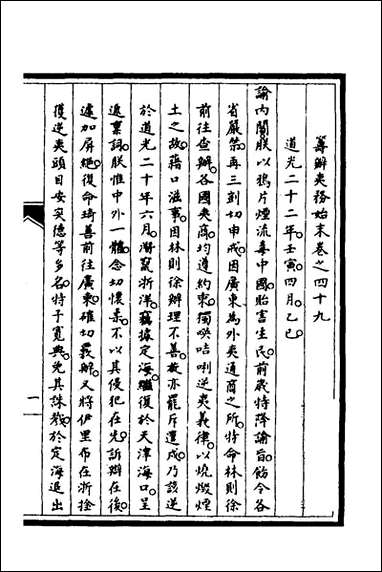 籌辦夷務始末卷之四十九
道光二十二年壬寅四月乙巳
諭內閣朕以鴉片煙流毒中國貽害生民前歲特降諭旨飭令各
省嚴禁再三剴切申戒因廣東為外夷通商之所特命林則徐
前往查辦各國夷商均遵約束獨𠸄咭唎逆夷義律以燒燬煙
土之故藉口滋事因林則徐辦理不善故亦罷斥遣戍乃該逆
於道光二十年六月潛竄浙洋竊據定海繼復於天津海口呈
遞稟詞朕惟中外一體念切懷柔不以其侵犯在先訴辯在後
遽加屏絕復命琦善前往廣東確切籌辦又將伊里布在浙拴
獲逆夷頭目安突德等多名特予寬典免其誅戮於定海退出
一